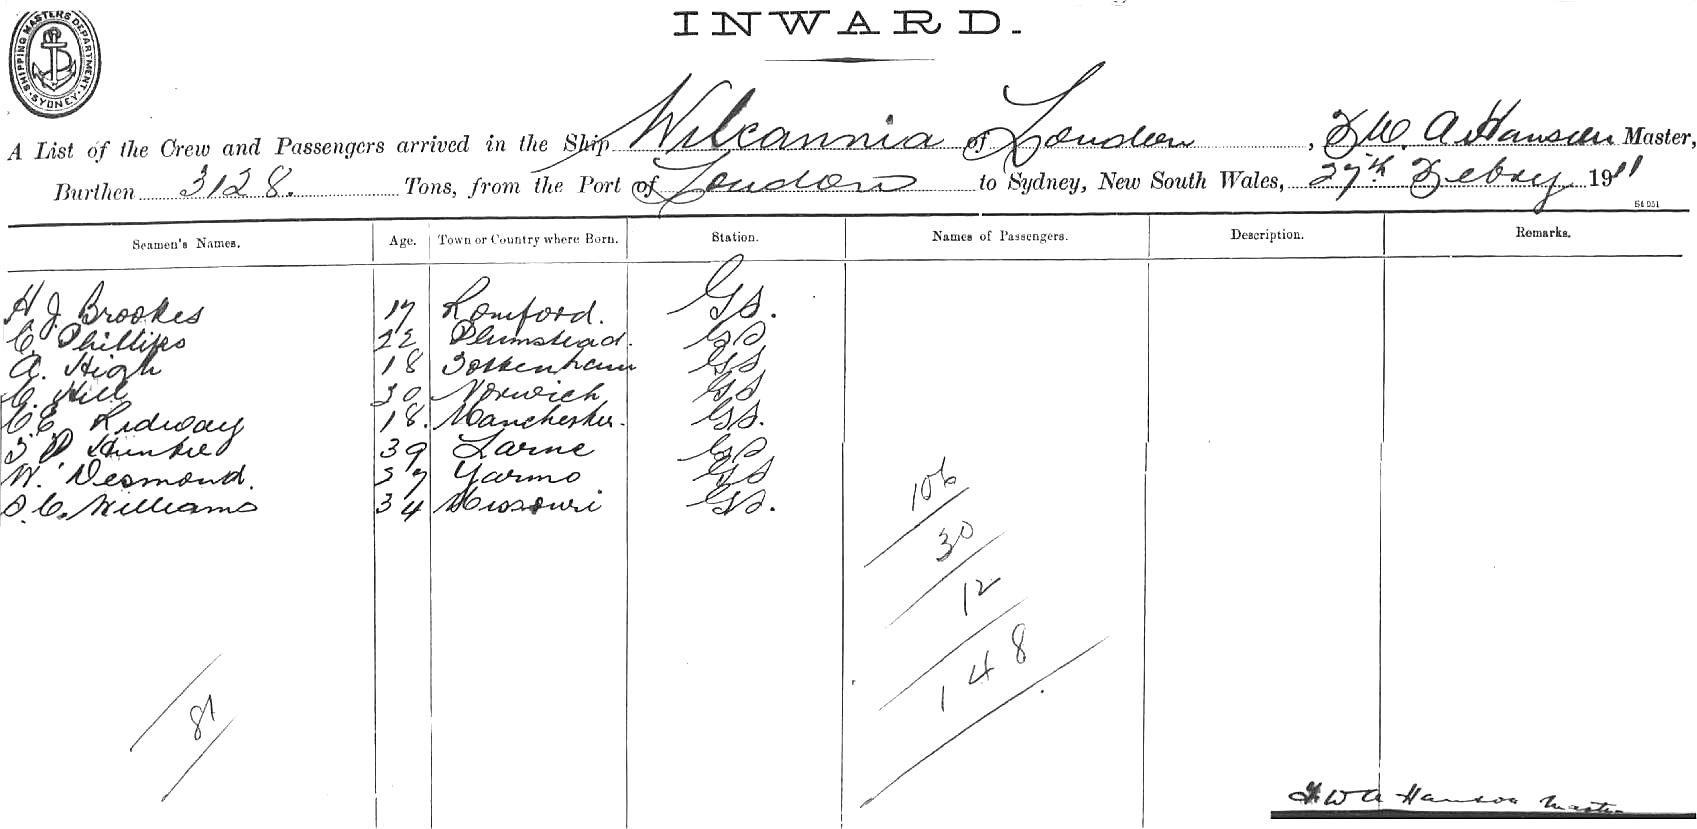 SHIPPING MASTERS DEPARTMENT. SYDNEY.
INWARD.
A List of the Crew and Passengers arrived in the Ship Wilcannia of London, F W. A. Hansen Master,
Burthen 3128. Tons, from the Port of London to Sydney, New South Wales, 27th Febry 1911
Seamen's Names. Age. Town or Country where Born. Station. Names of Passengers. Description. Remarks.
H J. Brookes 17 Romford. GS.
C. Phillips 22 Plumstead. GS
A. High 18 Tottenham GS
C. Hill 30 Norwich GS
C E Ridway 18. Manchester. GS.
39 Larne GS
W. Desmond. 37 Yarmo GS
S. C. Williams 34 Missouri GS.
106
30
12
148
81
F W A Hansen Master